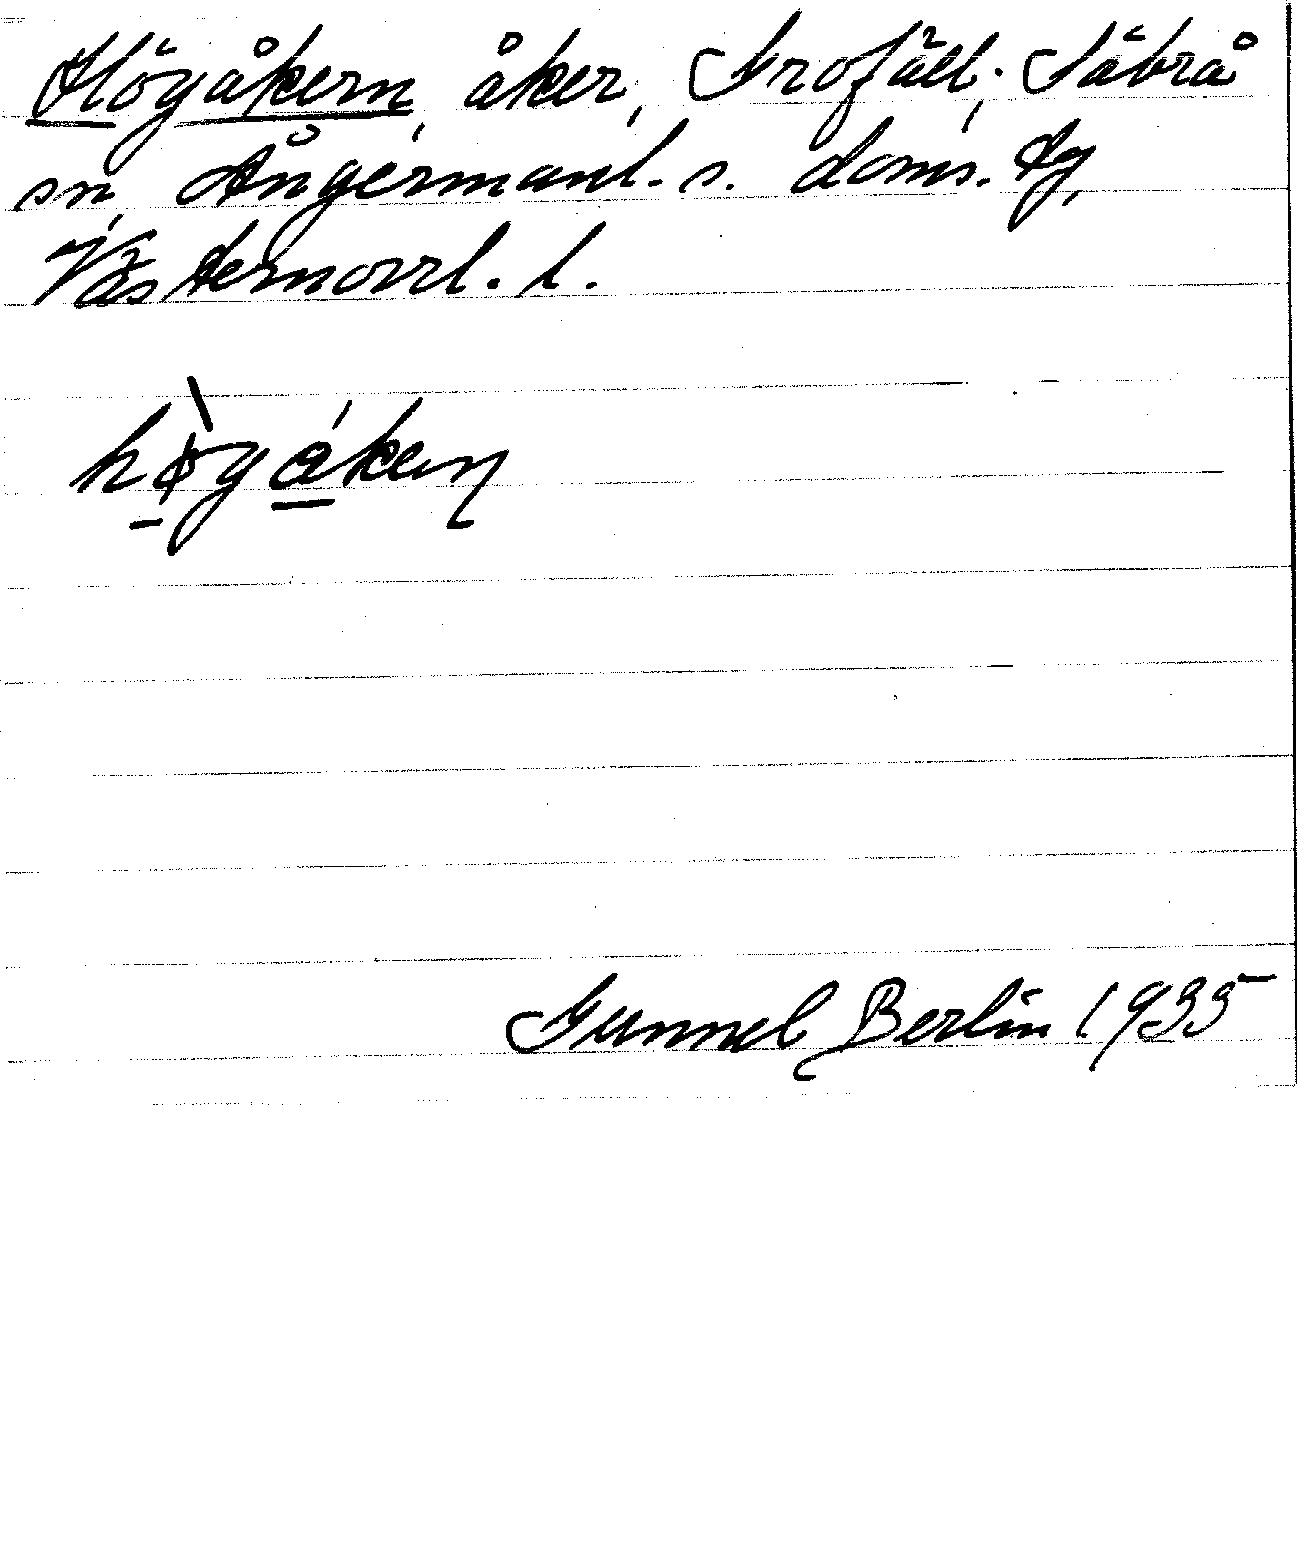 Högåkern, åker, Frofäll, Säbrå
sn, Ångermanl. s. doms. tg,
Västernorrl. l.
hø̀gåkeɳ
Gunnel Berlin 1935